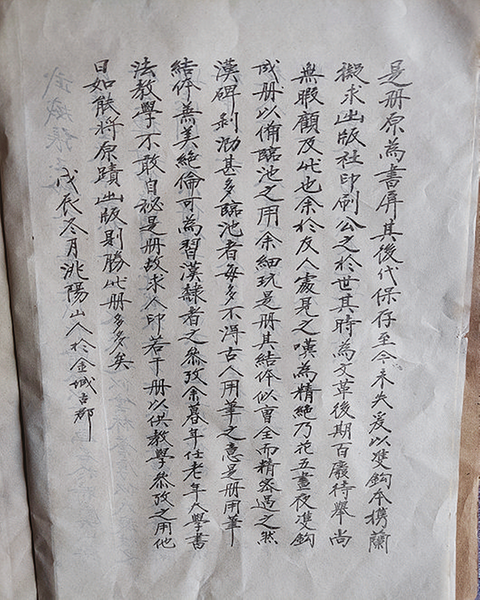 是册原為書屏其後代保存至今未失爰以雙鈎本携蘭
擬求出版社印刷公之於世其時為文革後期百廢待舉尚
無暇顧及此也余於友人處見之嘆為精絶乃花五晝夜雙鈎
成册以備臨池之用余細玩是册其結体似曹全而精密過之然
漢碑剥泐甚多臨池者每多不得古人用筆之意是册用筆
結体善美絶倫可為習漢隸者之叅攷余暮年任老年大學書
法教學不敢自秘是册故求人印若干册以供教學叅攷之用他
日如能将原蹟出版則勝此册多多矣
戊辰冬月洮陽山人於金城古郡